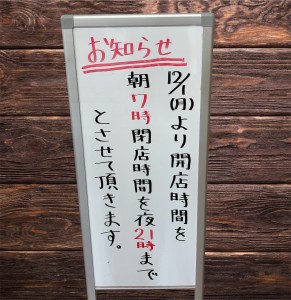 お知らせ
12/1(月)より開店時間を
朝7時閉店時間を夜21時まで
とさせて頂きます。